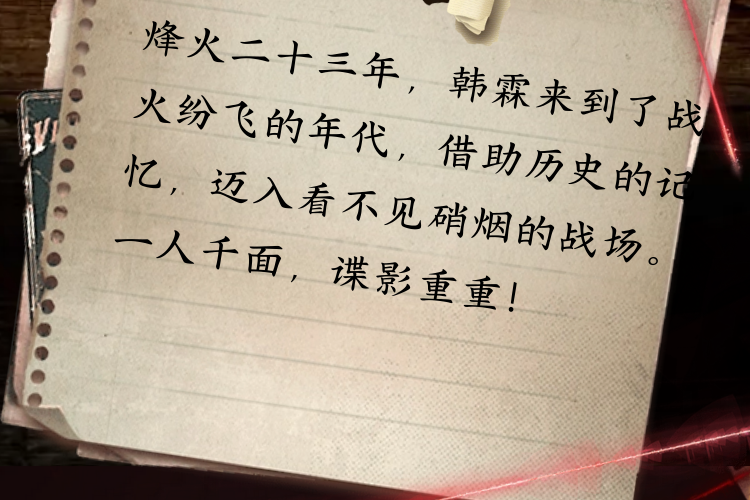 烽火二十三年，韩霖来到了战
火纷飞的年代，借助历史的记
忆，迈入看不见硝烟的战场。
一人千面，谍影重重！